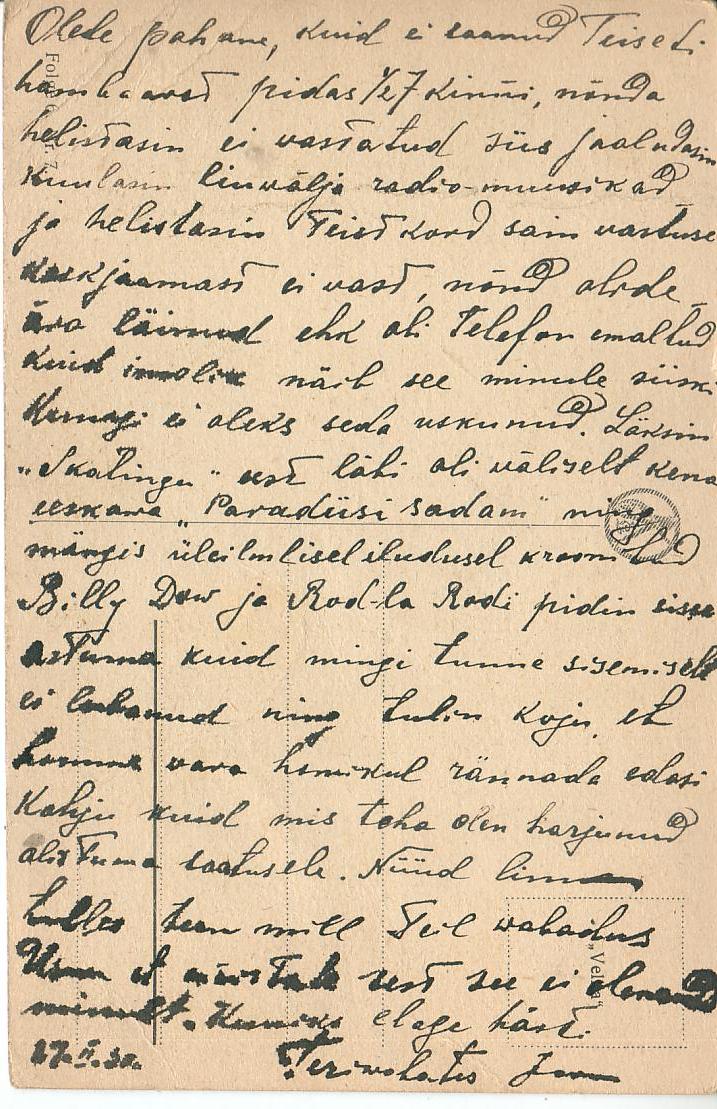 Olete pahane, kuid ei saanud Teiseti
hambaarst pidas 1/27 kinni, nõnda
helistasin ei vastatud siis jaaludasin
kuulasin linwälja radio-muusikad
ja helistasin Teist kord sain vastuse
keskjaamast ei vast, nõnd olide
ära läinud ehk oli Telefon emaltud
kuid imelik näib see minule siiski
Kunagi ei oleks seda uskunud. Läksin
"Skatingu" läbi oli väliselt kena
eeskawa "Paradiisi sadam" ning
mängis üleilmlisel iludusel
Billy Dow ja Rod-la Rodi pidin sisse
astuma kuid mingi tunne sisemiselt
ei lubanud ning tulin koju, et
homme vara homikul rännada edasi
Kahju kuid mis teha olen harjunud
alistuma saatusele. Nüüd linna
tulles teen mill Teil wabadus
Usun et mõistate sest see ei olenend
minult. Kuniks elage hästi.
27.II.30. Teriwohates
"Velma"